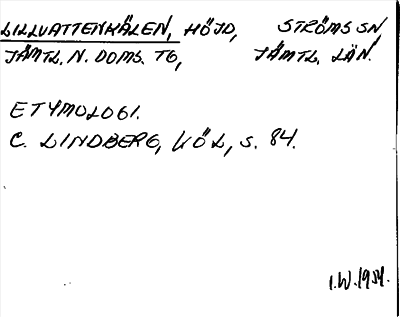 LILLVATTENKÅLEN, HÖJD, STRÖMS SN
JÄMTL. N. DOMS. TG, JÄMTL. LÄN.
ETYMOLOGI.
C. LINDBERG, KÖL, S. 84.
I.W. 1954.